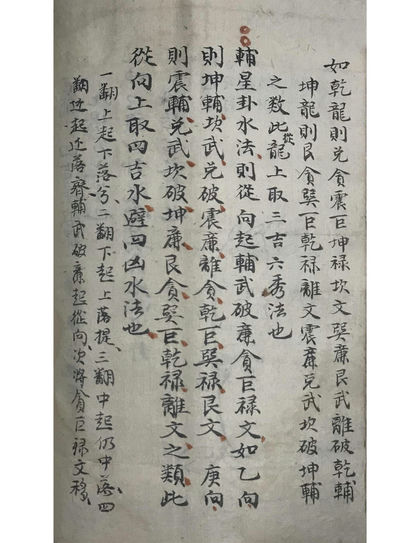 如乾龍則兑貪震巨坤祿坎文巽廉艮武離破乾輔
坤龍則艮貪巽巨乾禄離文震廉兑武坎破坤輔
之数此從龍上取三吉六秀法也
輔星卦水法則從向起輔武破廉貪巨禄文如乙向
則坤輔坎武兑破震廉離貪乾巨巽禄艮文庚向
則震輔兑武坎破坤廉艮貪巽巨乾禄離文之類此
從向上取四吉水避四凶水法也
一翻上起下落兮二翻下起上落提三翻中起仍中落四
翻边起还落齊輔武破廉起從向次將貪巨禄文移